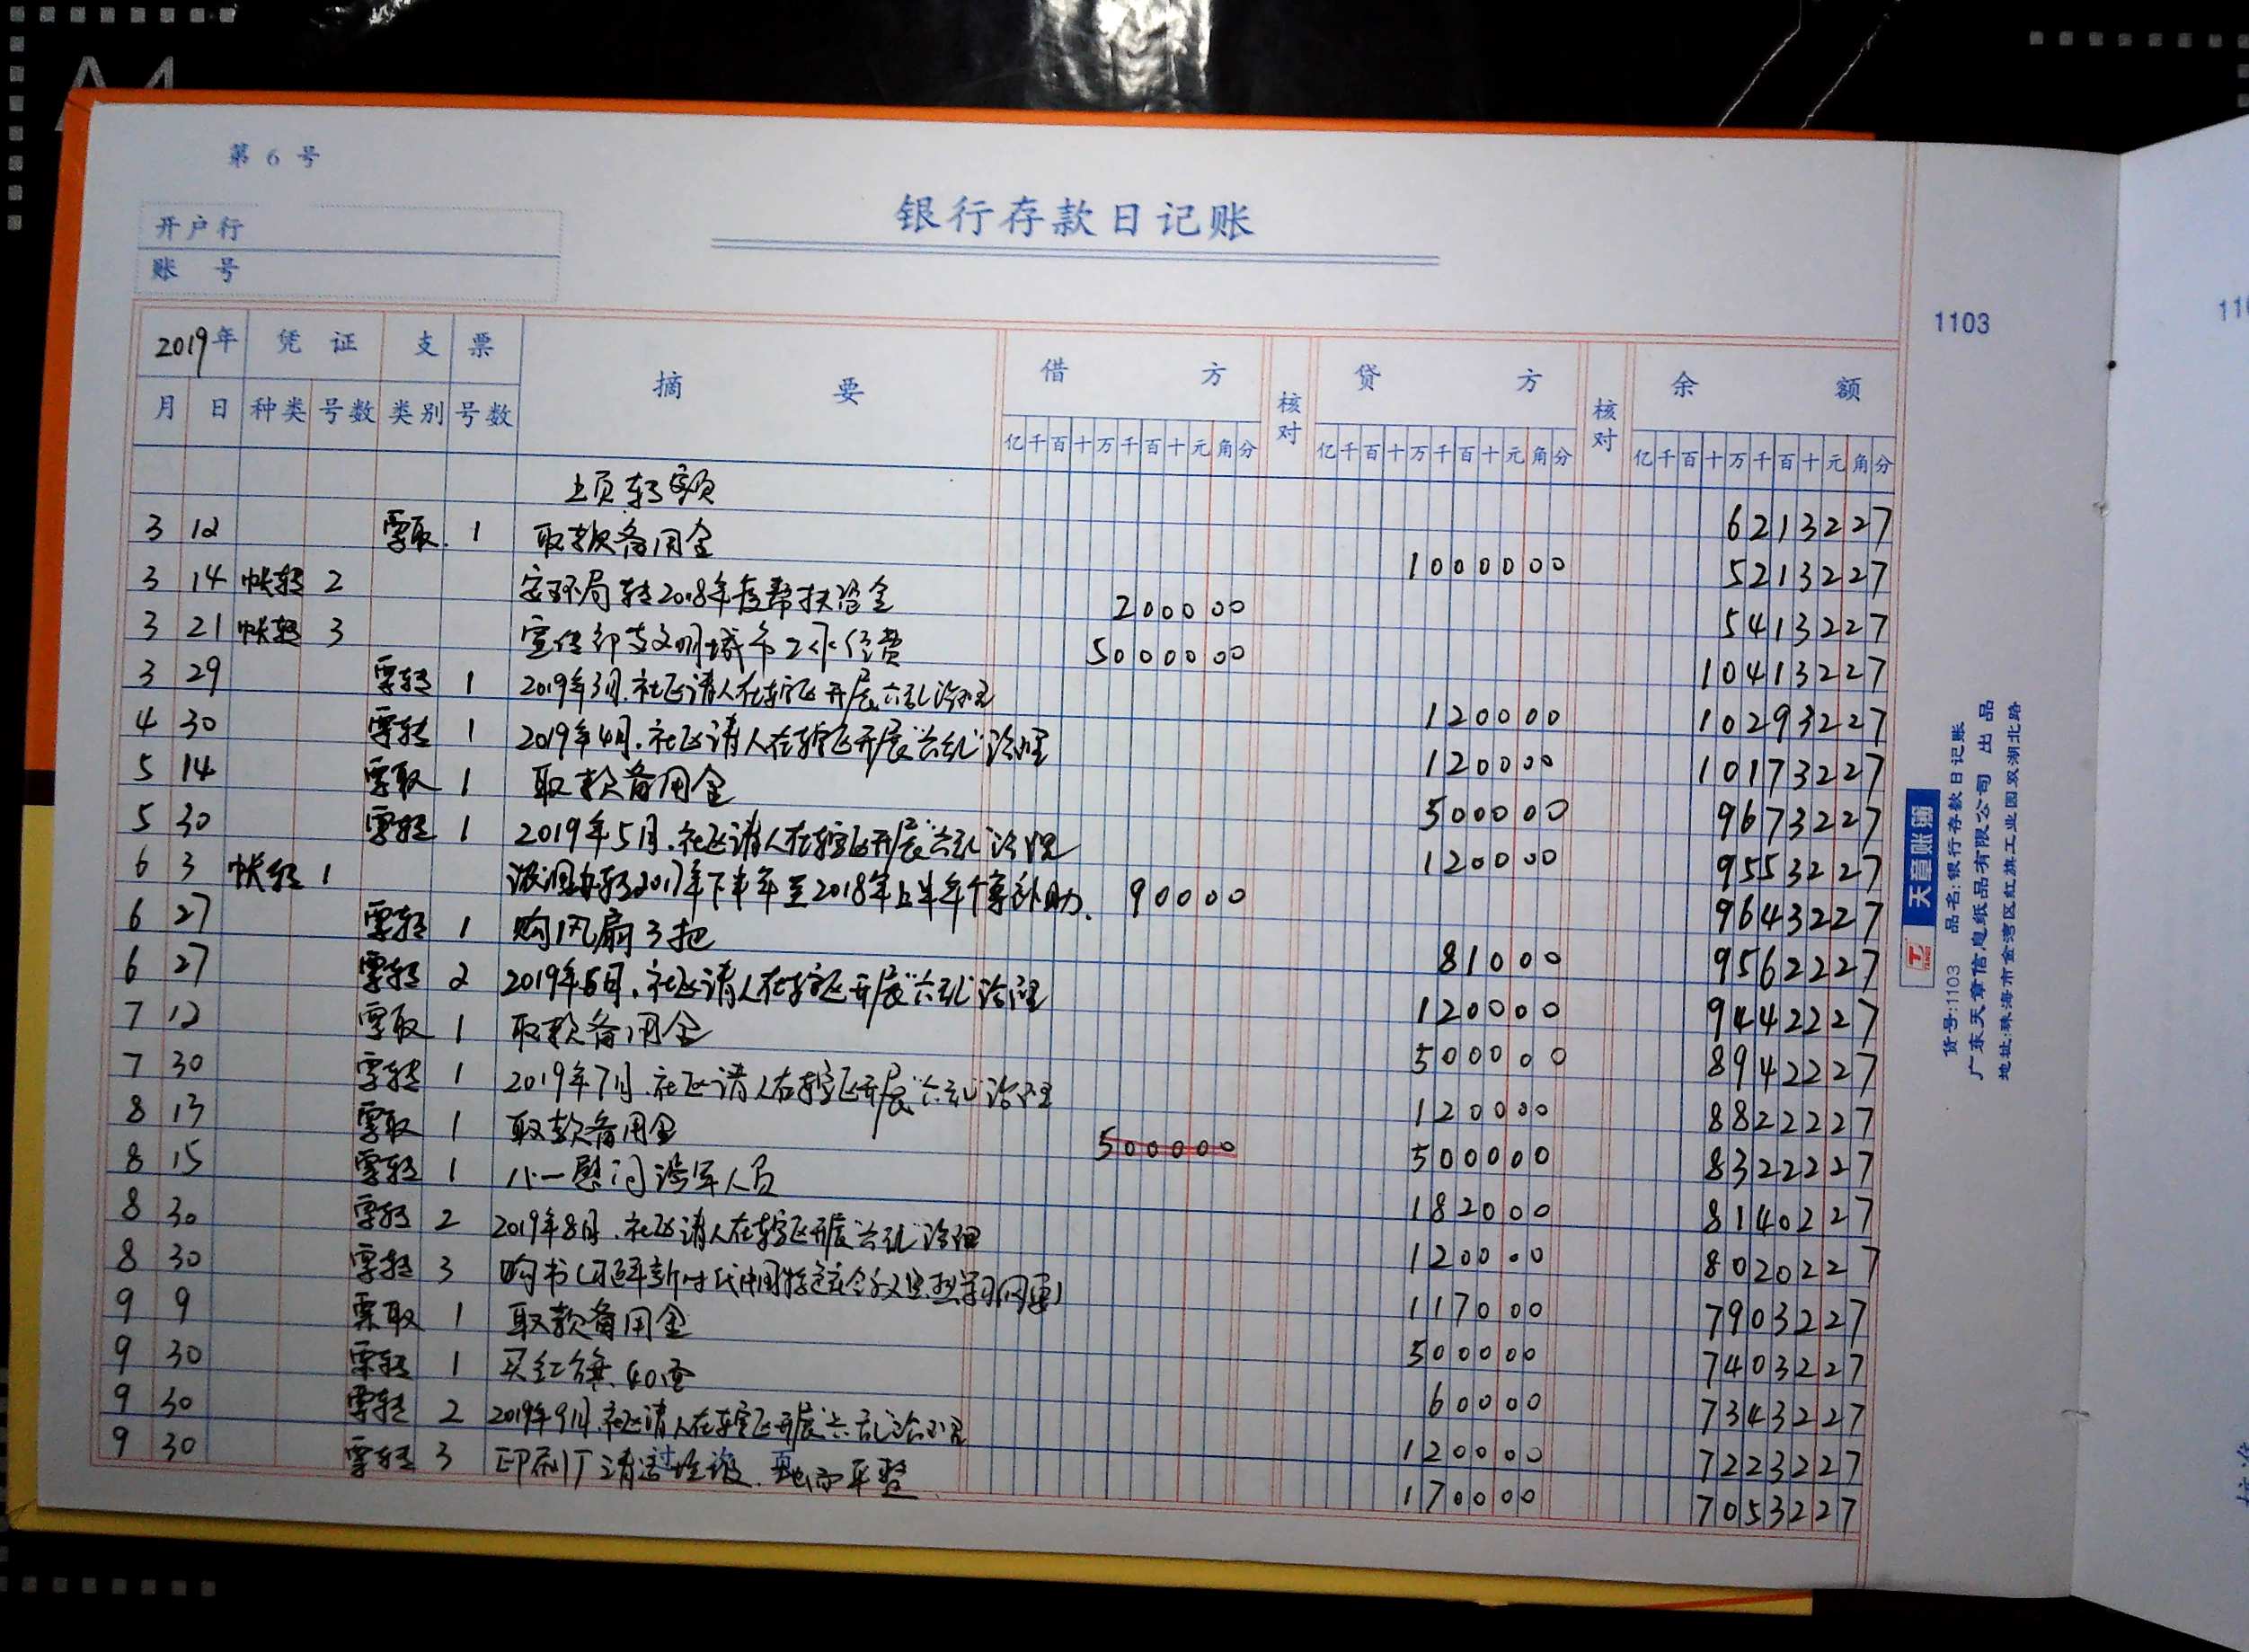 A4
第 6 号
银行存款日记账
开户行
账 号
1103
2019年 凭 证 支 票 摘 要 借 方 核对 贷 方 核对 余 额
月 日 种类 号数 类别 号数 亿千百十万千百十元角分 亿千百十万千百十元角分 亿千百十万千百十元角分
上页转额 6213227
3 12 票取 1 取款备用金 1000000 5213227
3 14 帐转 2 安环局转2018年度帮扶资金 200000 5413227
3 21 帐转 3 宣传部支文明城市工作经费 5000000 10413227
3 29 票转 1 2019年3月.社区请人在辖区开展六乱治理 120000 10293227
4 30 票转 1 2019年4月.社区请人在辖区开展“六乱”治理 120000 10173227
5 14 票取 1 取款备用金 500000 9673227
5 30 票转 1 2019年5月.社区请人在辖区开展“六乱”治理 120000 9553227
6 3 帐转 1 2017年下半年至2018年上半年 补助. 90000 9643227
6 27 票转 1 购风扇3把 81000 9562227
6 27 票转 2 2019年6月.社区请人在辖区开展“六乱”治理 120000 9442227
7 12 票取 1 取款备用金 500000 8942227
7 30 票转 1 2019年7月.社区请人在辖区开展“六乱”治理 120000 8822227
8 13 票取 1 取款备用金 500000 500000 8322227
8 15 票转 1 八一慰问涉军人员 182000 8140227
8 30 票转 2 2019年8月.社区请人在辖区开展六乱治理 120000 8020227
8 30 票转 3 购书(习近平新时代中国特色社会主义思想学习纲要) 117000 7903227
9 9 票取 1 取款备用金 500000 7403227
9 30 票转 1 买红旗40面 60000 7343227
9 30 票转 2 2019年9月.社区请人在辖区开展“六乱”治理 120000 7223227
9 30 票转 3 印刷厂清运垃圾.地面平整 170000 7053227
天章账簿
货号:1103 品名:银行存款日记账
广东天章信息纸品有限公司 出品
地址:珠海市金湾区红旗工业园双湖北路